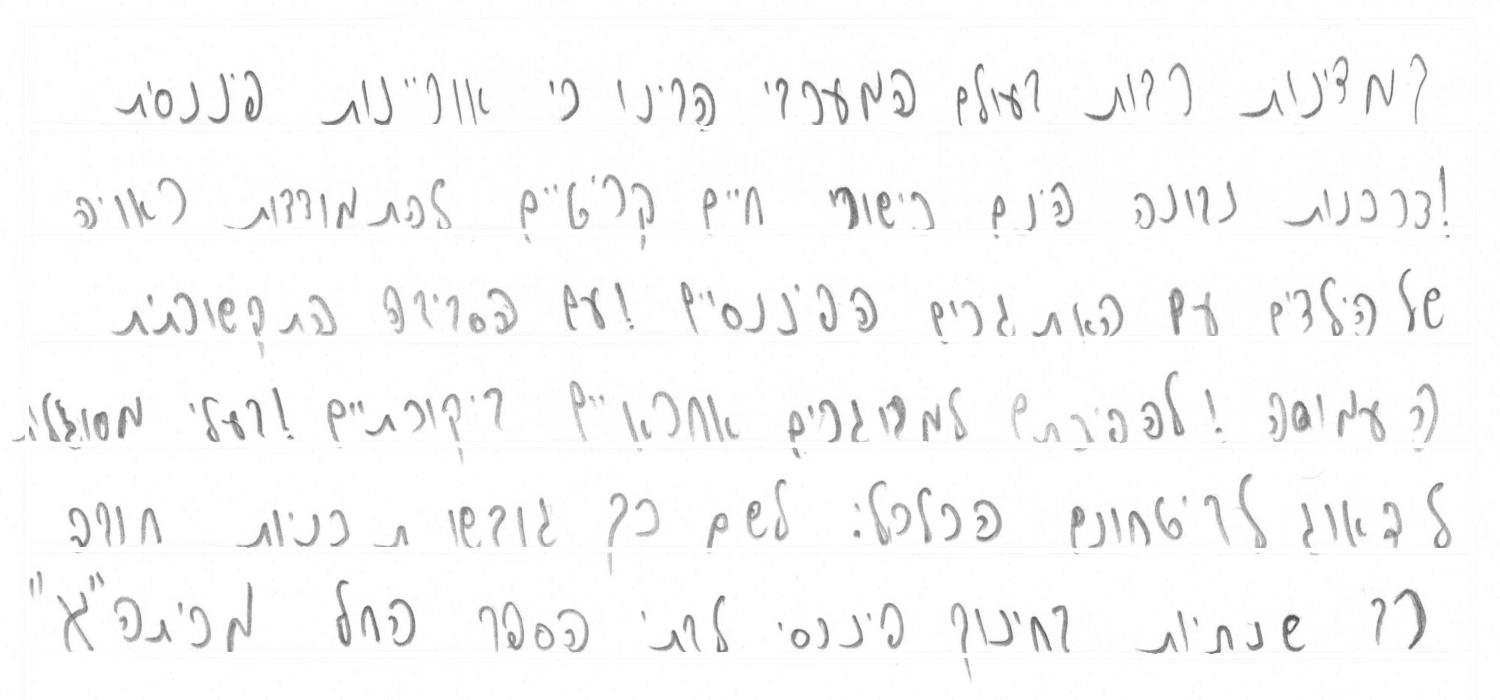 במדינות רבות בעולם המערבי הבינו כי אוריינות פיננסית
וצרכנות נבונה הינם כישורי חיים קריטיים להתמודדות ראויה
של הילדים עם האתגרים הפיננסיים ועם הסביבה התקשורתית
העמוסה ולהפיכתם למבוגרים אחראיים ביקורתיים ובעלי מסוגלות
לדאוג לביטחונם הכלכלי. לשם כך גובשו תכניות חובה
רב שנתיות בחינוך פיננסי לבתי הספר החל מכיתה "א"